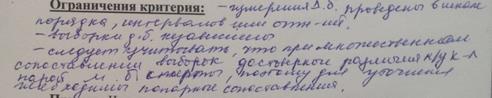 Ограничения критерия: - измерения д.б. проведены в шкале
порядка, интервалов или отн-ий.
- выборки д.б. независимы
- следует учитывать, что при множественном
сопоставлении выборок достоверные различия м/у к-л
парой м.б. стерты, поэтому для уточнения
необходимы попарные сопоставления.